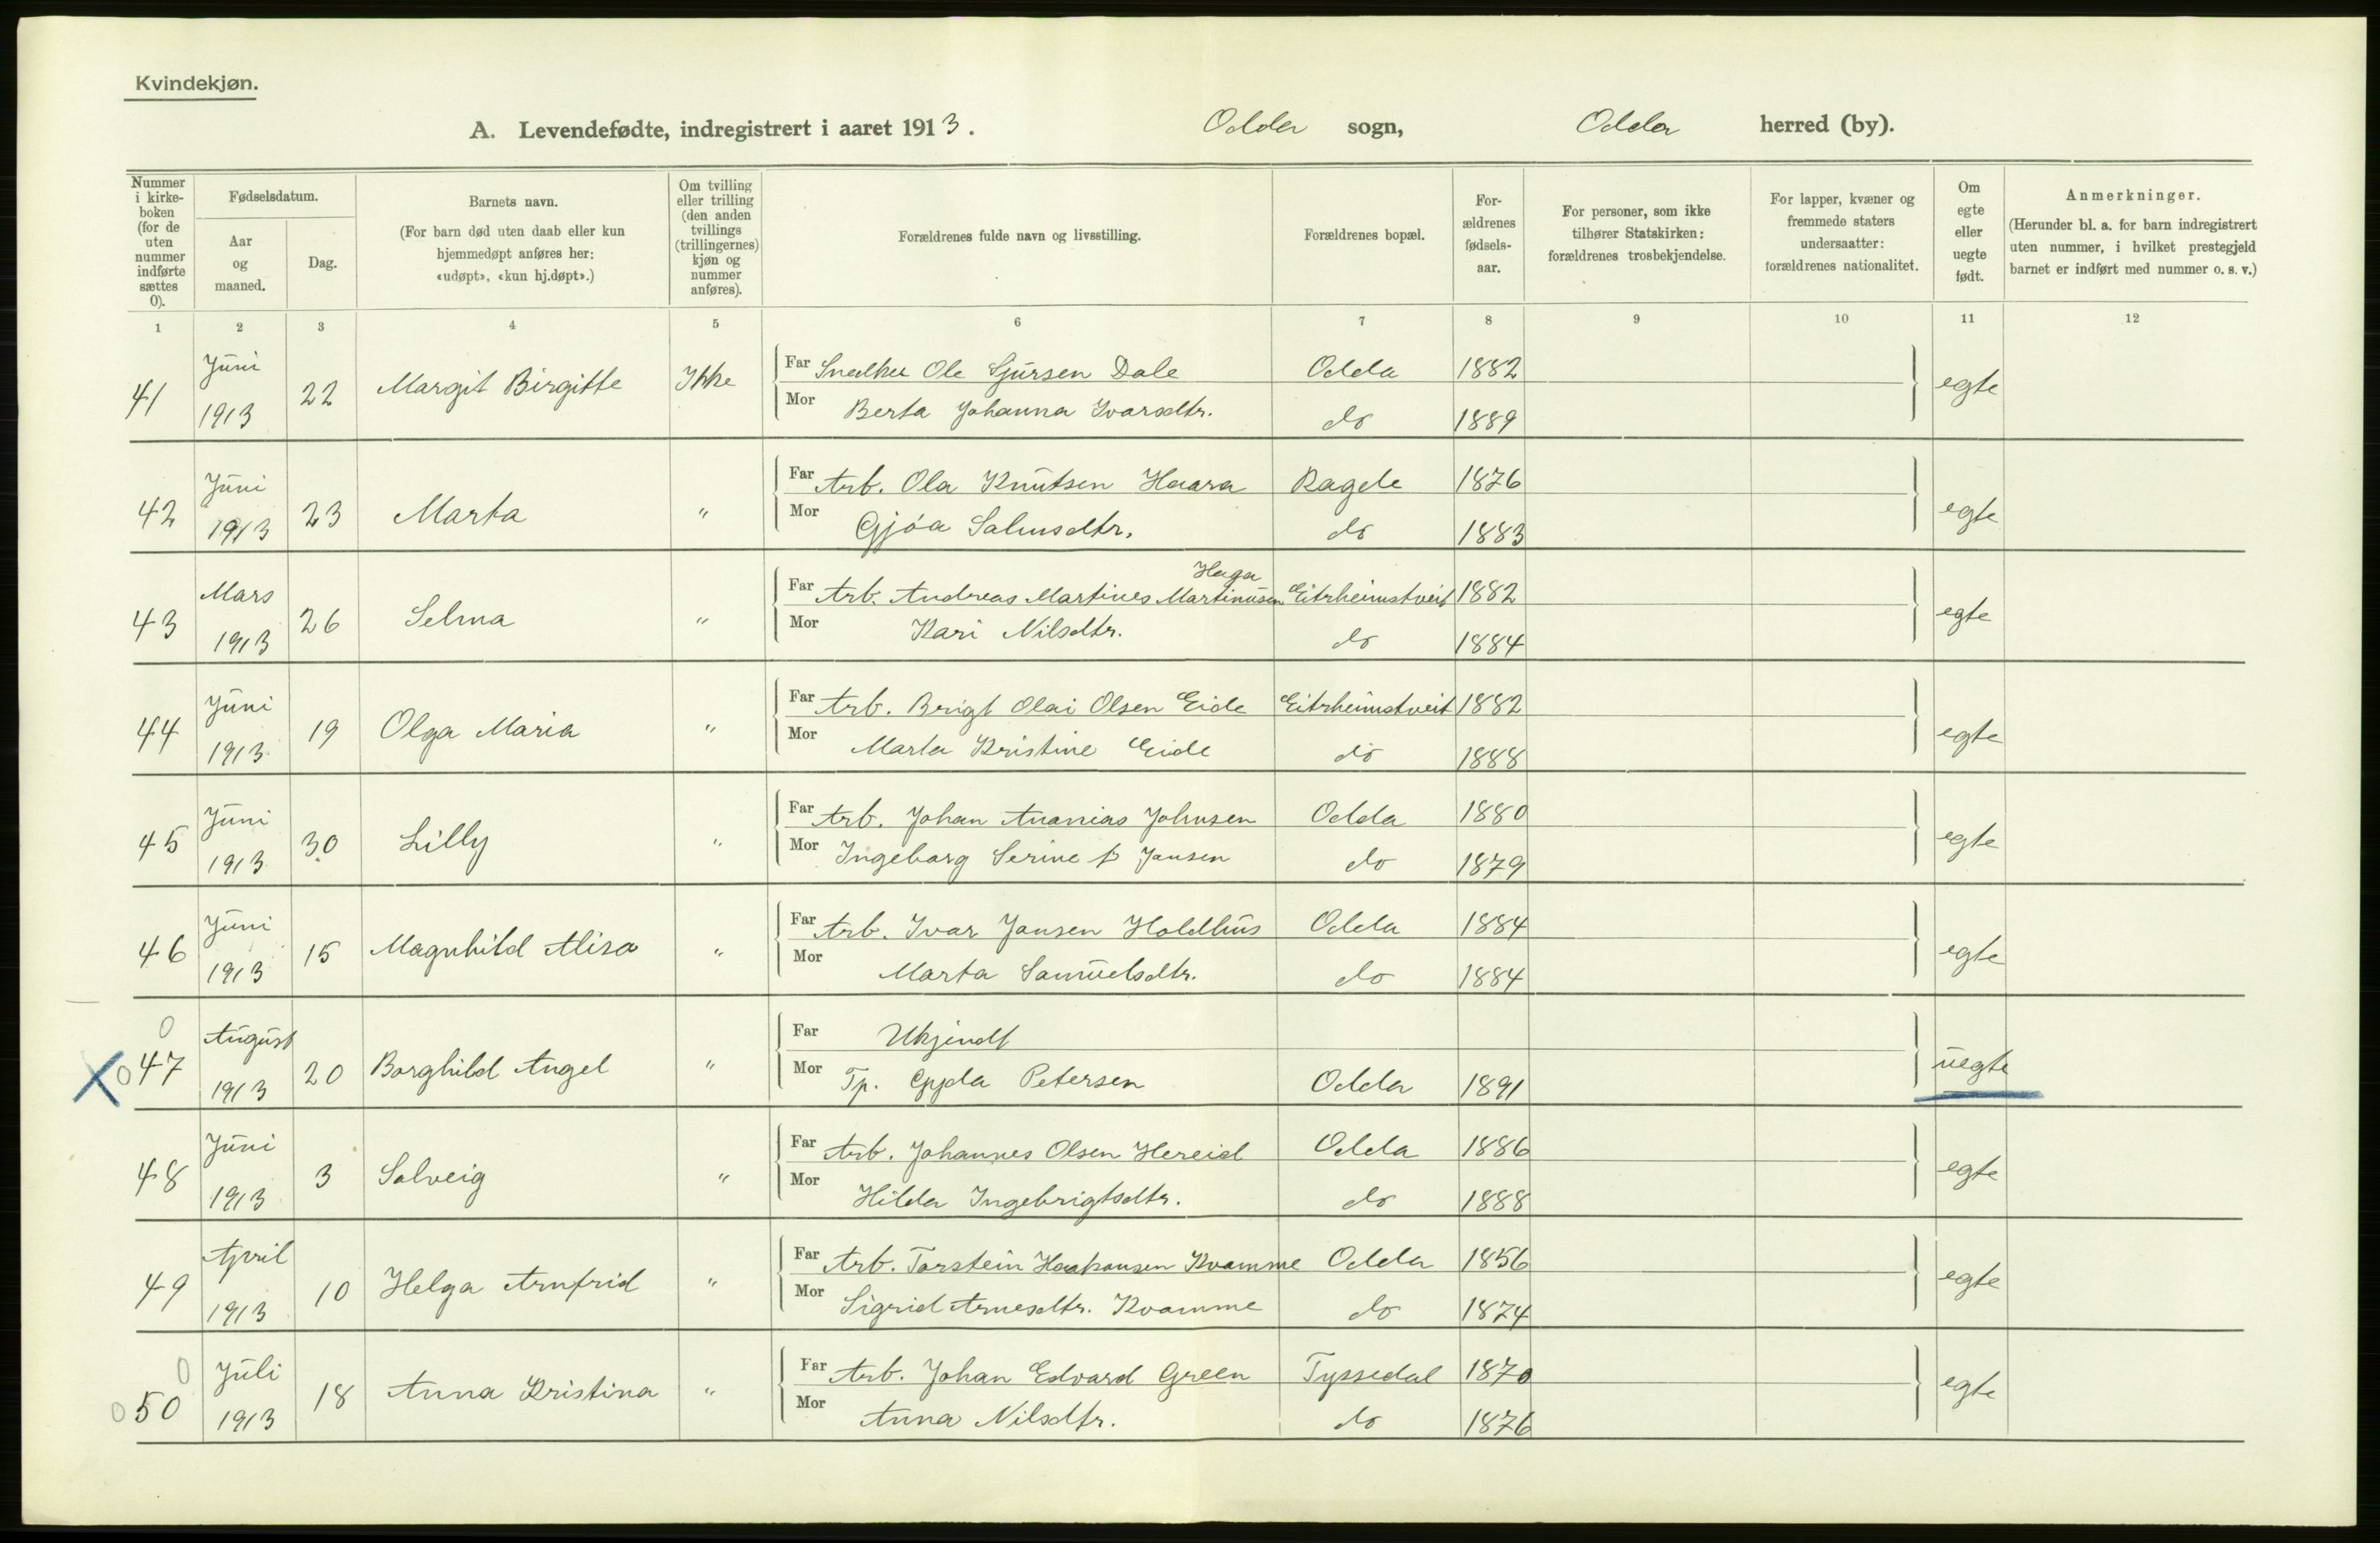 Kvindekjøn.
A. Levendefødte, indregistrert i aaret 1913. Odda sogn, Odda herred (by).
Nummer i kirke-boken (for de uten nummer indførte sættes 0).
Fødselsdatum.
Aar og maaned.
Dag.
Barnets navn.
(For barn død uten daab eller kun hjemmedøpt anføres her: «udøpt», «kun hj.døpt».)
Om tvilling eller trilling (den anden tvillings (trillingernes) kjøn og nummer anføres).
Forældrenes fulde navn og livsstilling.
Forældrenes bopæl.
For-ældrenes fødsels-aar.
For personer, som ikke tilhører Statskirken: forældrenes trosbekjendelse.
For lapper, kvæner og fremmede staters undersaatter: forældrenes nationalitet.
Om egte eller uegte født.
Anmerkninger.
(Herunder bl. a. for barn indregistrert uten nummer, i hvilket prestegjeld barnet er indført med nummer o. s. v.)
1 2 3 4 5 6 7 8 9 10 11 12
41 Juni 1913 22 Margit Birgitte Ikke egte
Far Snedker Ole Sjursen Dale Odda 1882
Mor Berta Johanna Ivarsdtr. do 1889
42 Juni 1913 23 Marta " egte
Far Arb. Ola Knutsen Haara Ragde 1876
Mor Gjóa Salmsdtr. do 1883
43 Mars 1913 26 Selma " egte
Far Arb. Andreas Martines Martinusen Haga Eitrheimstveit 1882
Mor Kari Nilsdtr. do 1884
44 Juni 1913 19 Olga Maria " egte
Far Arb. Brigt Olai Olsen Eide Eitrheimstveit 1882
Mor Marta Kristine Eide do 1888
45 Juni 1913 30 Lilly " egte
Far Arb. Johan Ananias Johnsen Odda 1880
Mor Ingeborg Serine f. Jansen do 1879
46 Juni 1913 15 Magnhild Alisa " egte
Far Arb. Ivar Jansen Holdhus Odda 1884
Mor Marta Samuelsdtr. do 1884
0
X 0 47 August 1913 20 Borghild Angel " uegte
Far Ukjendt
Mor Tp. Gyda Petersen Odda 1891
48 Juni 1913 3 Solveig " egte
Far Arb. Johannes Olsen Hereid Odda 1886
Mor Hilda Ingebrigtsdtr. do 1888
49 April 1913 10 Helga Arnfrid " egte
Far Arb. Torstein Haakonsen Kvamme Odda 1856
Mor Sigrid Arnesdtr. Kvamme do 1874
0
0 50 Juli 1913 18 Anna Kristina " egte
Far Arb. Johan Edvard Green Tyssedal 1870
Mor Anna Nilsdtr. do 1876